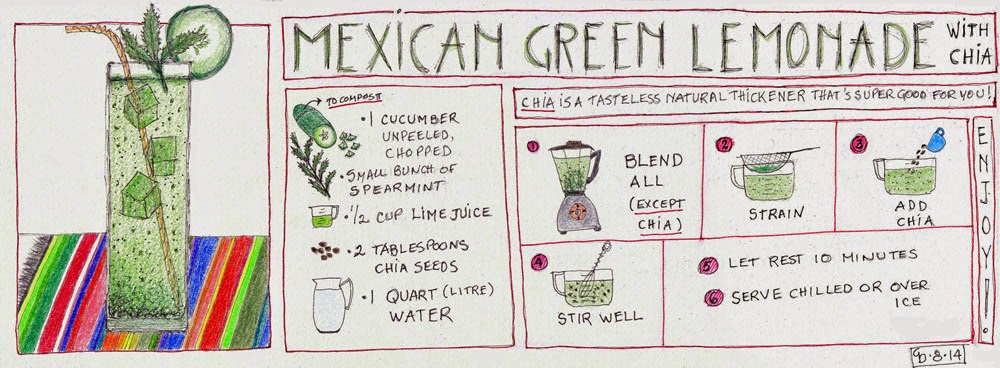 MEXICAN GREEN LEMONADE
WITH
CHIA
TO COMPOST
• 1 CUCUMBER
UNPEELED,
CHOPPED
• SMALL BUNCH OF
SPEARMINT
• 1/2 CUP LIME JUICE
• 2 TABLESPOONS
CHIA SEEDS
• 1 QUART (LITRE)
WATER
CHIA IS A TASTELESS NATURAL THICKENER THAT'S SUPER GOOD FOR YOU!
1
BLEND
ALL
(EXCEPT
CHIA)
2
STRAIN
3
ADD
CHIA
4
STIR WELL
5 LET REST 10 MINUTES
6 SERVE CHILLED OR OVER
ICE
ENJOY!
8·14